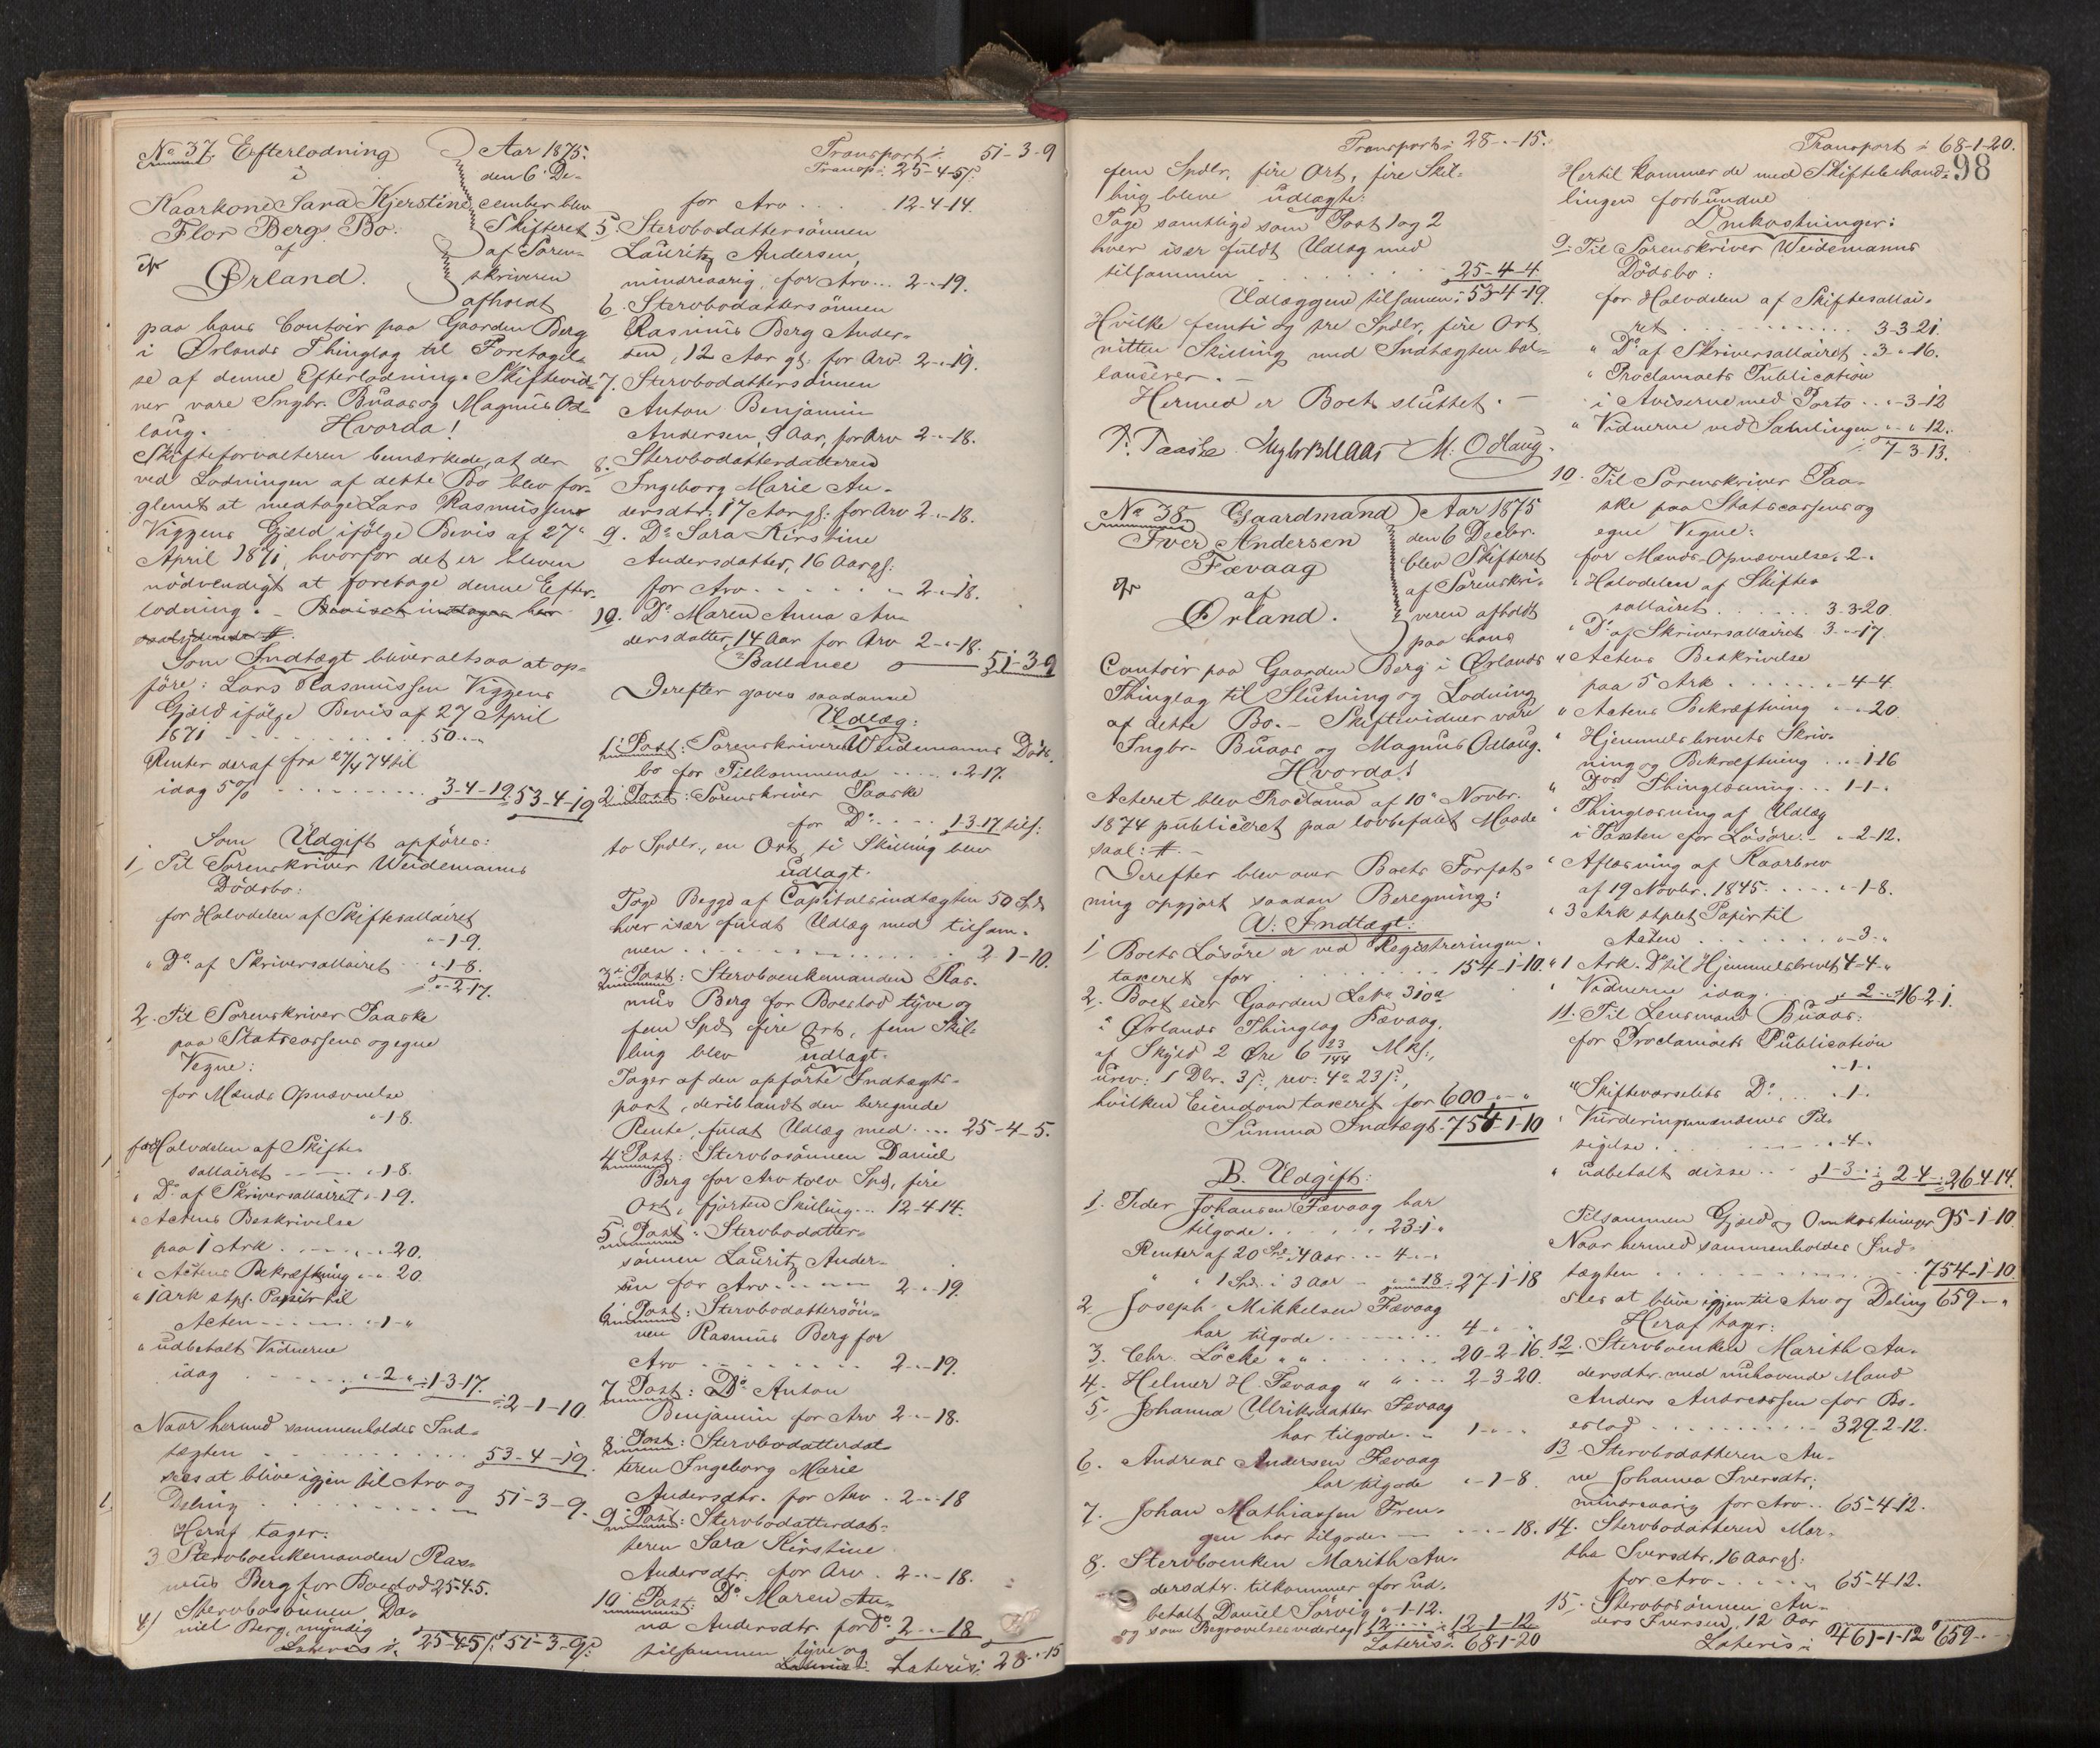 No 37. Efterlodning
i
Kaarkone Sara Kjerstine
Flor Bergs Bo.
af
Ørland.
Aar 1875.
den 6 De-
cember blev
Skifteret
af Soren-
skriveren
afholdt
paa hans Contoir paa Gaarden Berg
i Ørlands Thinglag til Foretagel-
se af denne Efterlodning. Skiftevid-
ner vare Ingbr. Buaas og Magnus Od-
laug.
Hvorda!
Skifteforvalteren bemærkede, at der
ved Lodningen af dette Bo blev for-
glemt at medtage Lars Rasmussens
Viggens Gjæld ifølge Bevis af 27
April 1871, hvorfor det er bleven
nødvendigt at foretage denne Efter-
lodning. - Beviset indtages her
saalydende #
Som Indtægt bliver altsaa at op-
føre: Lars Rasmussen Viggens
Gjæld ifølge Bevis af 27 April
1871 - - - - 50 „ „
Renter deraf fra 27/4 74 til
idag 5% - - - - 3-4-19. 53-4-19
Som Udgift opføres:
1, Til Sorenskriver Weidemanns
Dødsbo:
for Halvdelen af Skiftesallairet
„-1-9.
„ Do af Skriversallairet „-1-8.
„-2-17.
2. Til Sorenskriver Paaske
paa Statscassens og egne
Vegne:
for Mænds Opnævnelse
„-1-8.
for Halvdelen af Skifte-
sallairet - - - „-1-8.
„ Do af Skriversallairet „-1-9.
„ Actens Beskrivelse
paa 1 Ark - - - „-„-20.
„ Actens Bekræftning „-„-20.
„ 1 Ark stpl. Papir til
Acten - - - - „-1-„
„ udbetalt Vidnerne
idag - - - - „-2-„ 1-3-17.
2-1-10
Naar hermed sammenholdes Ind-
tægten - - - - 53-4-19.
sees at blive igjen til Arv og
Deling - - - - 51-3-9.
Heraf tager:
3 Stervboenkemanden Ras-
mus Berg for Boeslod 25-4-5.
4) Stervbosønnen Da-
niel Berg, myndig
Lateris 25-4-5 51-3-9
Transport 51-3-9
Transp. 25-4-5
for Arv - - - 12-4-14.
5. Stervbodattersønnen
Lauritz Andersen,
mindreaarig, for Arv... 2-„-19.
6. Stervbodattersønnen
Rasmus Berg Ander-
sen, 12 Aar gl. for Arv 2-„-19.
7. Stervbodattersønnen
Anton Benjamin
Andersen, 9 Aar, for Arv 2-„-18.
8. Stervbodatterdatteren
Ingeborg Marie An-
dersdtr. 17 Aar gl. for Arv 2-„-18.
9. Do Sara Kirstine
Andersdatter, 16 Aar gl.
for Arv - - - - 2-„-18.
10. Do Maren Anna An-
dersdatter, 14 Aar for Arv 2-„-18.
Ballance 51-3-9
Derefter gaves saadanne
Udlæg:
1 Post: Sorenskriver Weidemanns Døds-
bo for Tilkommende - - - „-2-17.
2 Post: Sorenskriver Paaske
for Do - - - 1-3-17 tils.
to Spdlr., en Ort, ti Skilling blev
udlagt.
Tage Begge af Capitalsindtægten 50 Spd
hver især fuldt Udlæg med tilsam-
men - - - - 2-1-10.
3 Post: Stervboenkemanden Ras-
mus Berg for Boeslod tyve og
fem Spd. fire Ort, fem Skil-
ling blev udlagt.
Tager af den opførte Indtægts-
post, deriblandt den beregnede
Rente, fuldt Udlæg med .... 25-4-5.
4 Post: Stervbosønnen Daniel
Berg for Arv tolv Spd, fire
Ort, fjorten Skilling... 12-4-14.
5 Post: Stervbodatter-
sønnen Lauritz Ander-
sen for Arv - - - 2-„-19.
6 Post: Stervbodattersøn-
nen Rasmus Berg for
Arv - - - - 2-„-19.
7 Post: Do Anton
Benjamin for Arv 2-„-18.
8 Post: Stervbodatterdat-
teren Ingeborg Marie
Andersdtr. for Arv . 2-„-18
9 Post: Stervbodatterdat-
teren Sara Kirstine
Andersdtr. for Arv . 2-„-18.
10 Post: Do Maren An-
na Andersdtr. for Do 2-„-18
tilsammen tyve og
Lateris Lateris 28-„-15
Transport 28-„-15.
fem Spdlr., fire Ort, fire Skil-
ling bleve udlagte.
Tage samtlige som Post 1 og 2
hver især fuldt Udlæg med
tilsammen - - - 25-4-4
Udlæggene tilsamen 53-4-19.
Hvilke femti og tre Spdlr., fire Ort
nitten Skilling med Indtægten bal-
lancerer. -
Hermed er Boet sluttet. -
P. Paaske Ingbr Buaas M. Odlaug.
No 38. Gaardmand
Iver Andersen
Fævaag
af
Ørland.
Aar 1875
den 6 Decbr.
blev Skifteret
af Sorenskri-
veren afholdt
paa hans
Contoir paa Gaarden Berg i Ørlands
Thinglag til Slutning og Lodning
af dette Bo. - Skiftevidner vare
Ingbr. Buaas og Magnus Odlaug.
Hvorda!
Acteret blev Proclama af 10 Novbr.
1874 publiceret paa lovbefalet Maade
saal: #. -
Derefter blev over Boets Forfat-
ning opgjort saadan Beregning:
A. Indtægt:
1 Boets Løsøre er ved Registreringen
taxeret for - - - 154-1-10.
2. Boet eier Gaarden Lbno 310a
i Ørlands Thinglag Fævaag,
af Skyld 2 Øre 6 23/144 Mkl.,
urev: 1 Dlr. 3 s:, rev: 4 o 23 s:,
hvilken Eiendom taxeret for 600 „ „
Summa Indtægt 754-1-10
B. Udgift:
1. Peder Johansen Fævaag har
tilgode - - - 23-1-„
Renter af 20 Spd. 4 Aar - - 4-„-„
„ „ 1 Spd. i 3 Aar - „-„-18 27-1-18
2. Joseph Mikkelsen Fævaag
har tilgode - - - 4-„-„
3. Chr. Löcke „ „ - - - 20-2-16.
4. Helmer H. Fævaag „ „ - - 2-3-20.
5. Johanna Ulriksdatter Fævaag
har tilgode - 1-„-„
6. Andreas Andersen Fævaag
har tilgode „-1-8.
7. Johan Mathiassen
har tilgode - - „-„-18.
8. Stervboenken Marith An-
dersdtr. tilkommer for ud-
betalt Daniel Sørvig „-1-12.
og som Begravelsesvederlag 12-„-„ 12-1-12
Lateris 68-1-20
Transport 68-1-20.
98
Hertil kommer de med Skiftebehand-
lingen forbundne
Omkostninger:
9. Til Sorenskriver Weidemanns
Dødsbo:
for Halvdelen af Skiftesallai-
ret - - - - 3-3-21.
„ Do af Skriversallairet . 3-„-16.
„ Proclamaets Publication
i Aviserne med Porto . . „-3-12
„ Vidnerne ved Samlingen „-„-12.
7-3-13.
10. Til Sorenskriver Paa-
ske paa Statscassens og
egne Vegne:
for Mænds Opnævnelse „ 2.
„ Halvdelen af Skifte-
sallairet . . . . 3-3-20
„ Do af Skriversallairet 3-„-17.
„ Actens Beskrivelse
paa 5 Ark - - - „-4-4.
„ Actens Bekræftning „-„-20
„ Hjemmelsbrevets Skriv-
ning og Bekræftning . . „-1-16
„ Dos Thinglæsning . . . 1-1-„
„ Thinglæsning af Udlæg
i Taxten for Løsøre - „-2-12.
„ Aflæsning af Kaarbrev
af 19 Novbr. 1845. - - - „-1-8.
„ 3 Ark stplet Papir til
Acten - - - - „-3-„
„ 1 Ark. Do til Hjemmelsbrevet 4-4-„
„ Vidnerne idag - - „-2-„ 16-2-1.
11. Til Lensmand Buaas:
for Proclamaets Publication
„-1-„
„ Skiftevarselets Do . . . „-1-„
„ Vurderingsmændenes Til-
sigelse . . . . „-4-„
„ udbetalt disse . . 1-3-„ 2-4-„ 26-4-14.
Tilsammen Gjæld og Omkostninger 95-1-10.
Naar hermed sammenholdes Ind-
tægten - - - - 754-1-10.
sees at blive igjen til Arv og Deling 659-„-„
Heraf tager:
12. Stervboenken Marith An-
dersdtr. med nuhavende Mand
Anders Andreassen for Bo-
eslod - - - - 329-2-12.
13. Stervbodatteren An-
ne Johanna Iversdtr.,
mindreaarig for Arv . . 65-4-12.
14. Stervbodatteren Mar-
tha Iversdtr. 16 Aar gl.
for Arv - - - - 65-4-12.
15. Stervbosønnen An-
ders Iversen, 12 Aar
Lateris 461-1-12 659-„-„